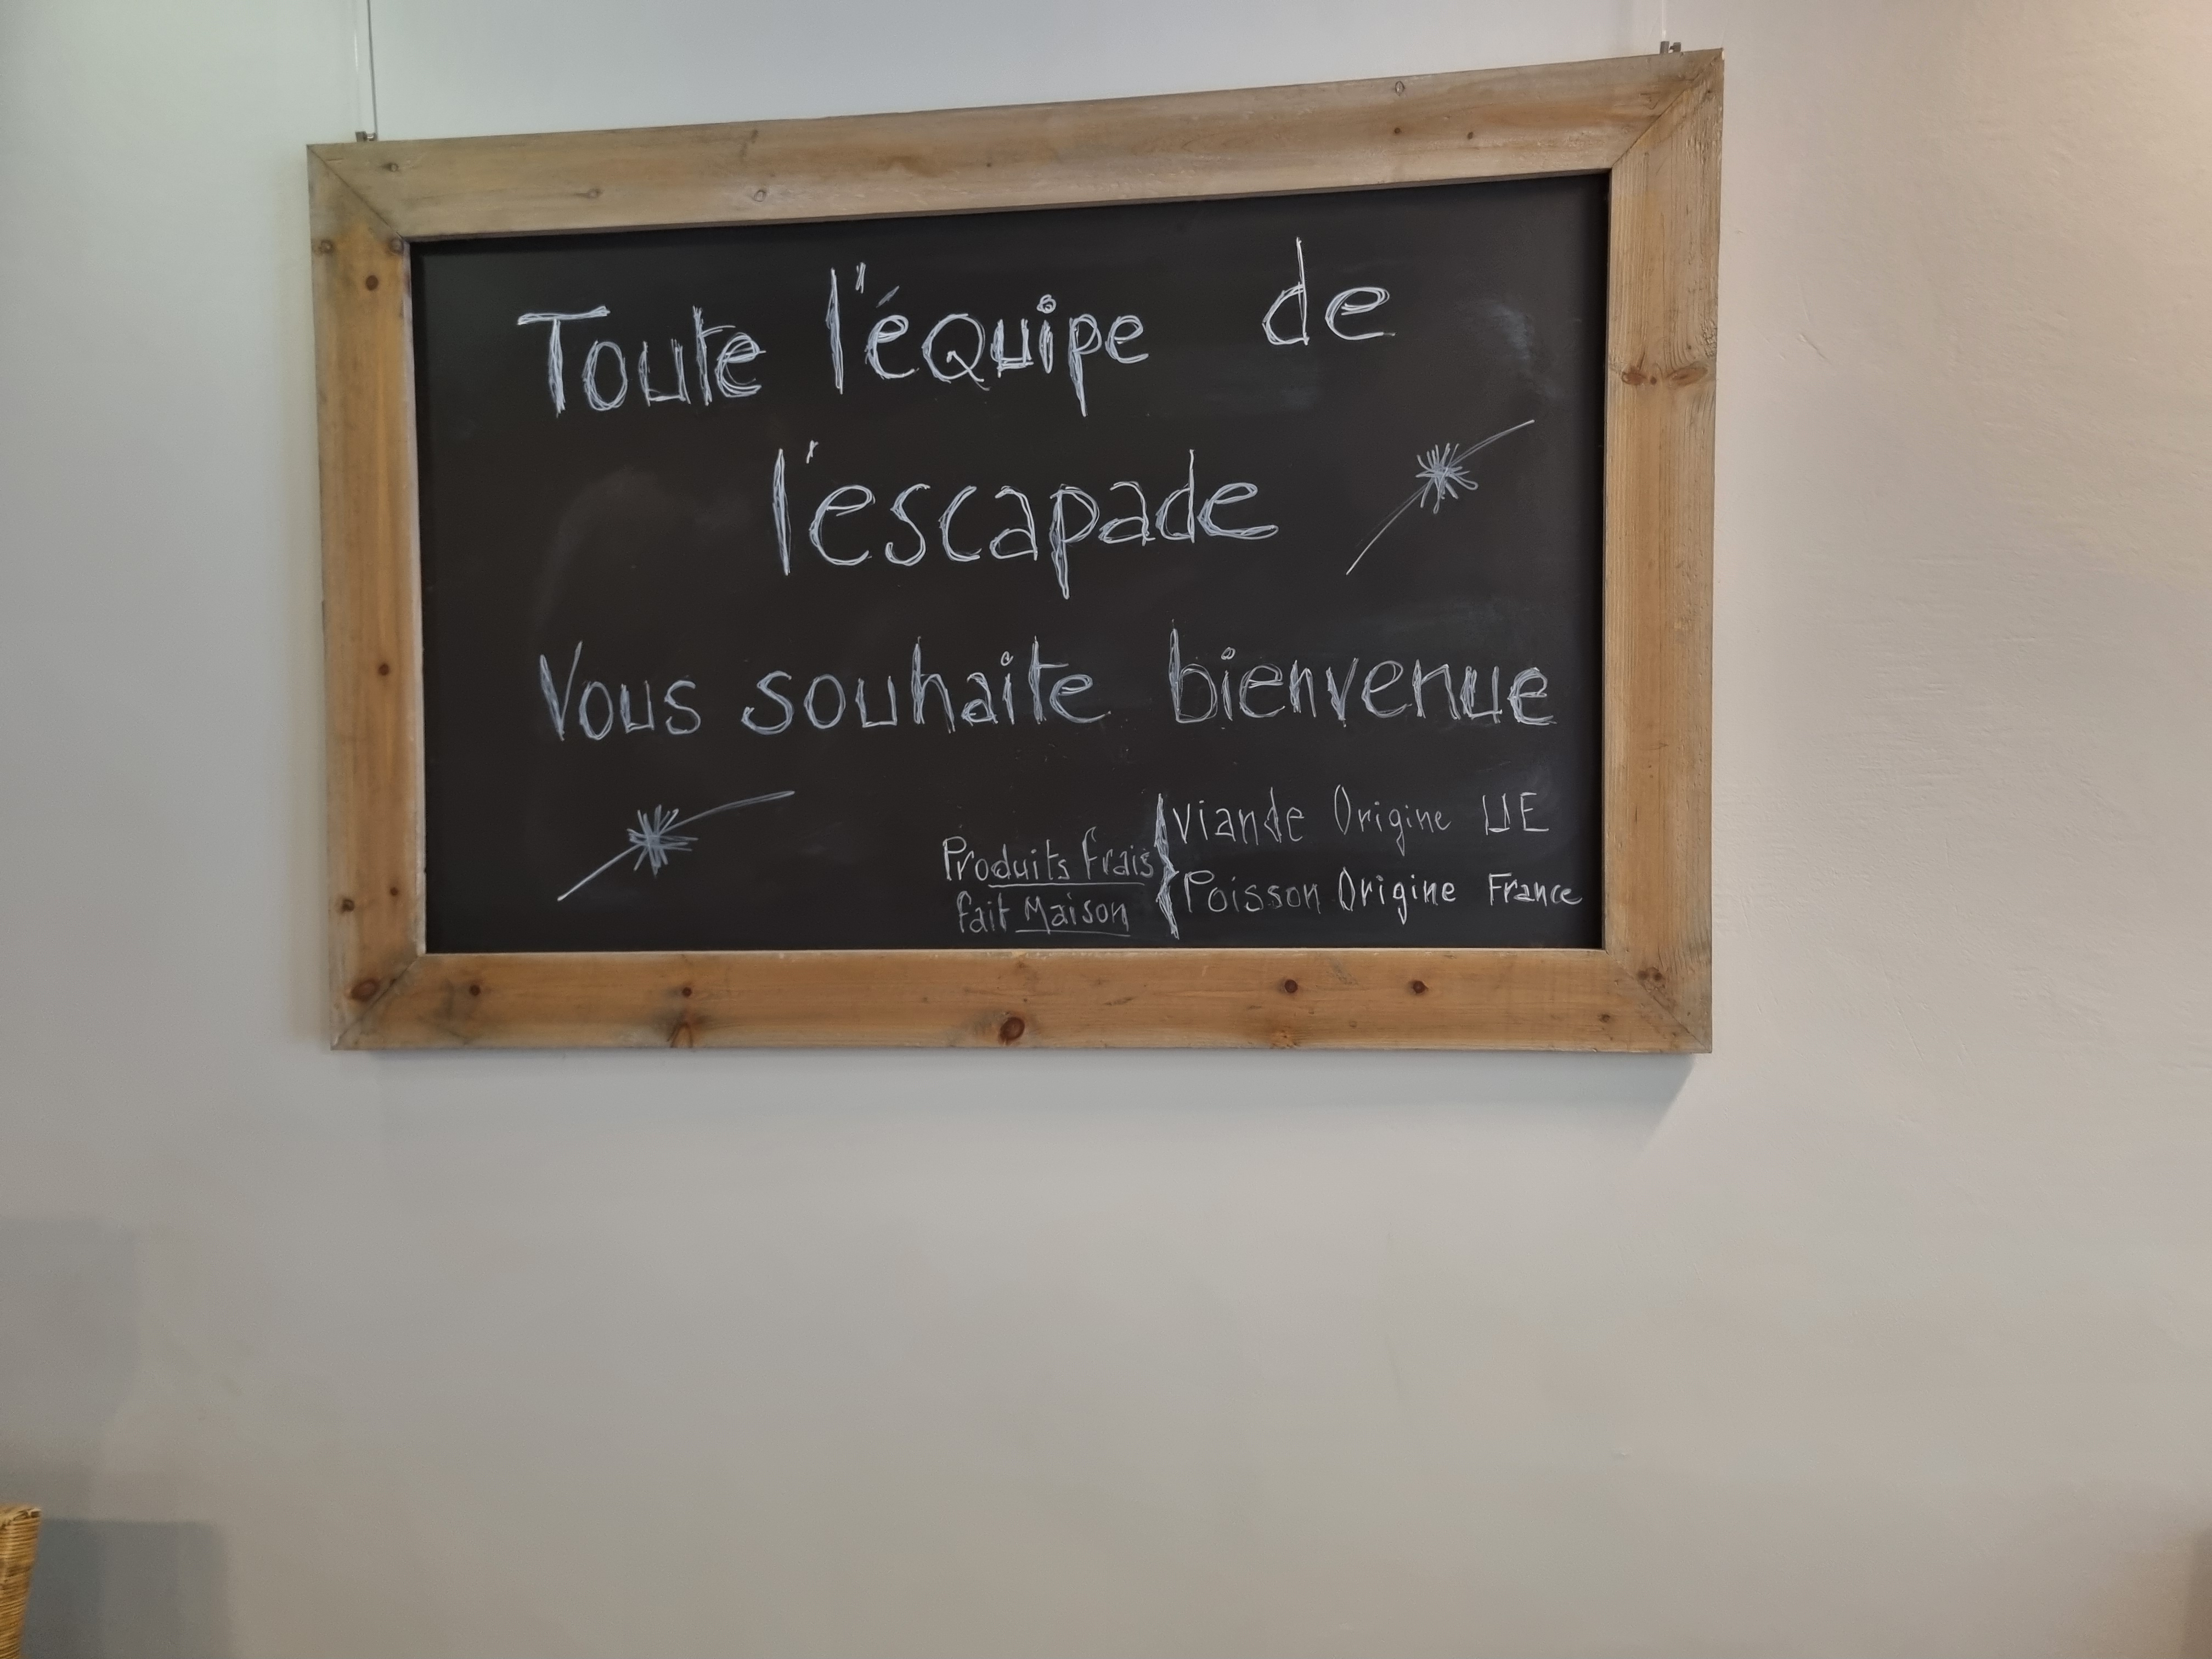 Toute l'équipe de
l'escapade
Vous souhaite bienvenue
Produits frais
fait Maison
Viande Origine UE
Poisson Origine France